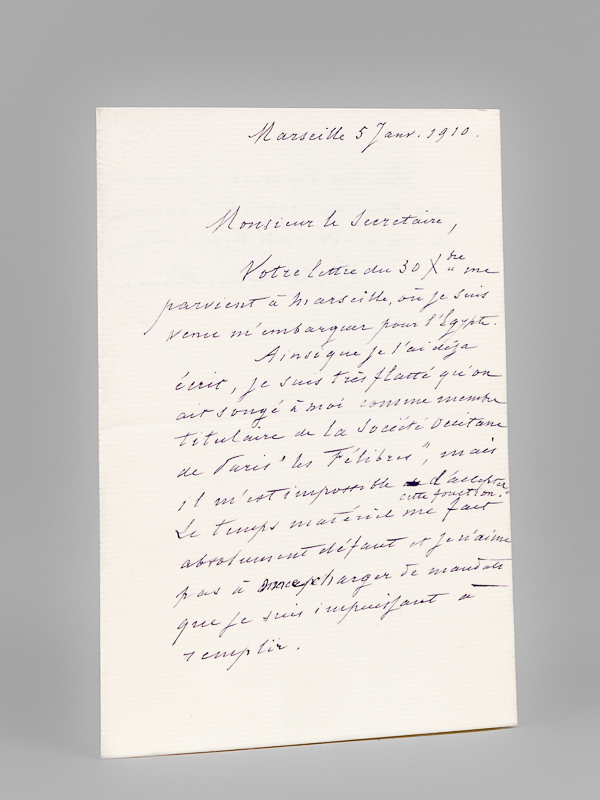 Marseille 5 Janv. 1910.
Monsieur le Secretaire,
Votre lettre du 30 Xbre me
parvient à Marseille, où je suis
venu m'embarquer pour l'Egypte.
Ainsi que je l'ai déja
écrit, je suis très flatté qu'on
ait songé à moi comme membre
titulaire de la Société Occitane
de Paris "les Félibres", mais
il m'est impossible d'accepter
cette fonction.
Le temps matériel me fait
absolument défaut et je n'aime
pas à charger de mandats
que je suis impuissant à
remplir.